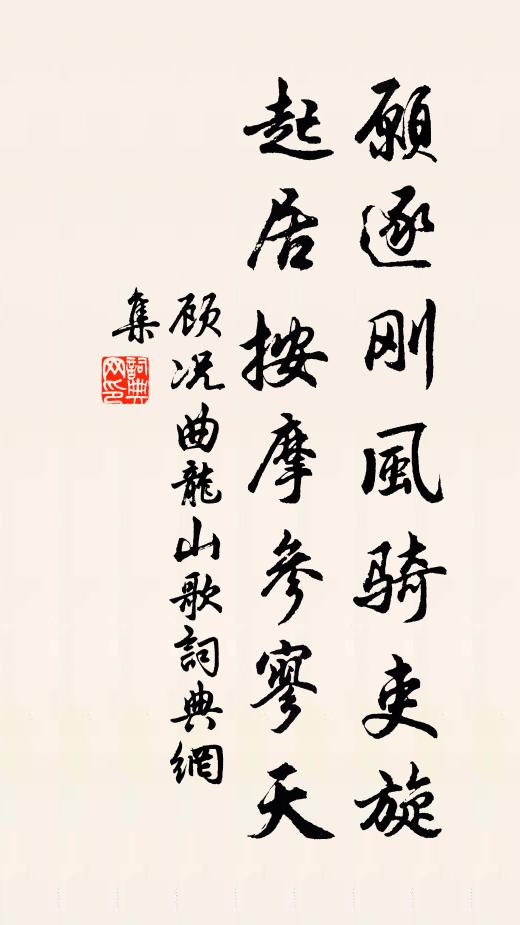 願逐刚風骑吏旋
起居按摩參寥天
顾况曲龍山歌詞典網
集
詞典網印